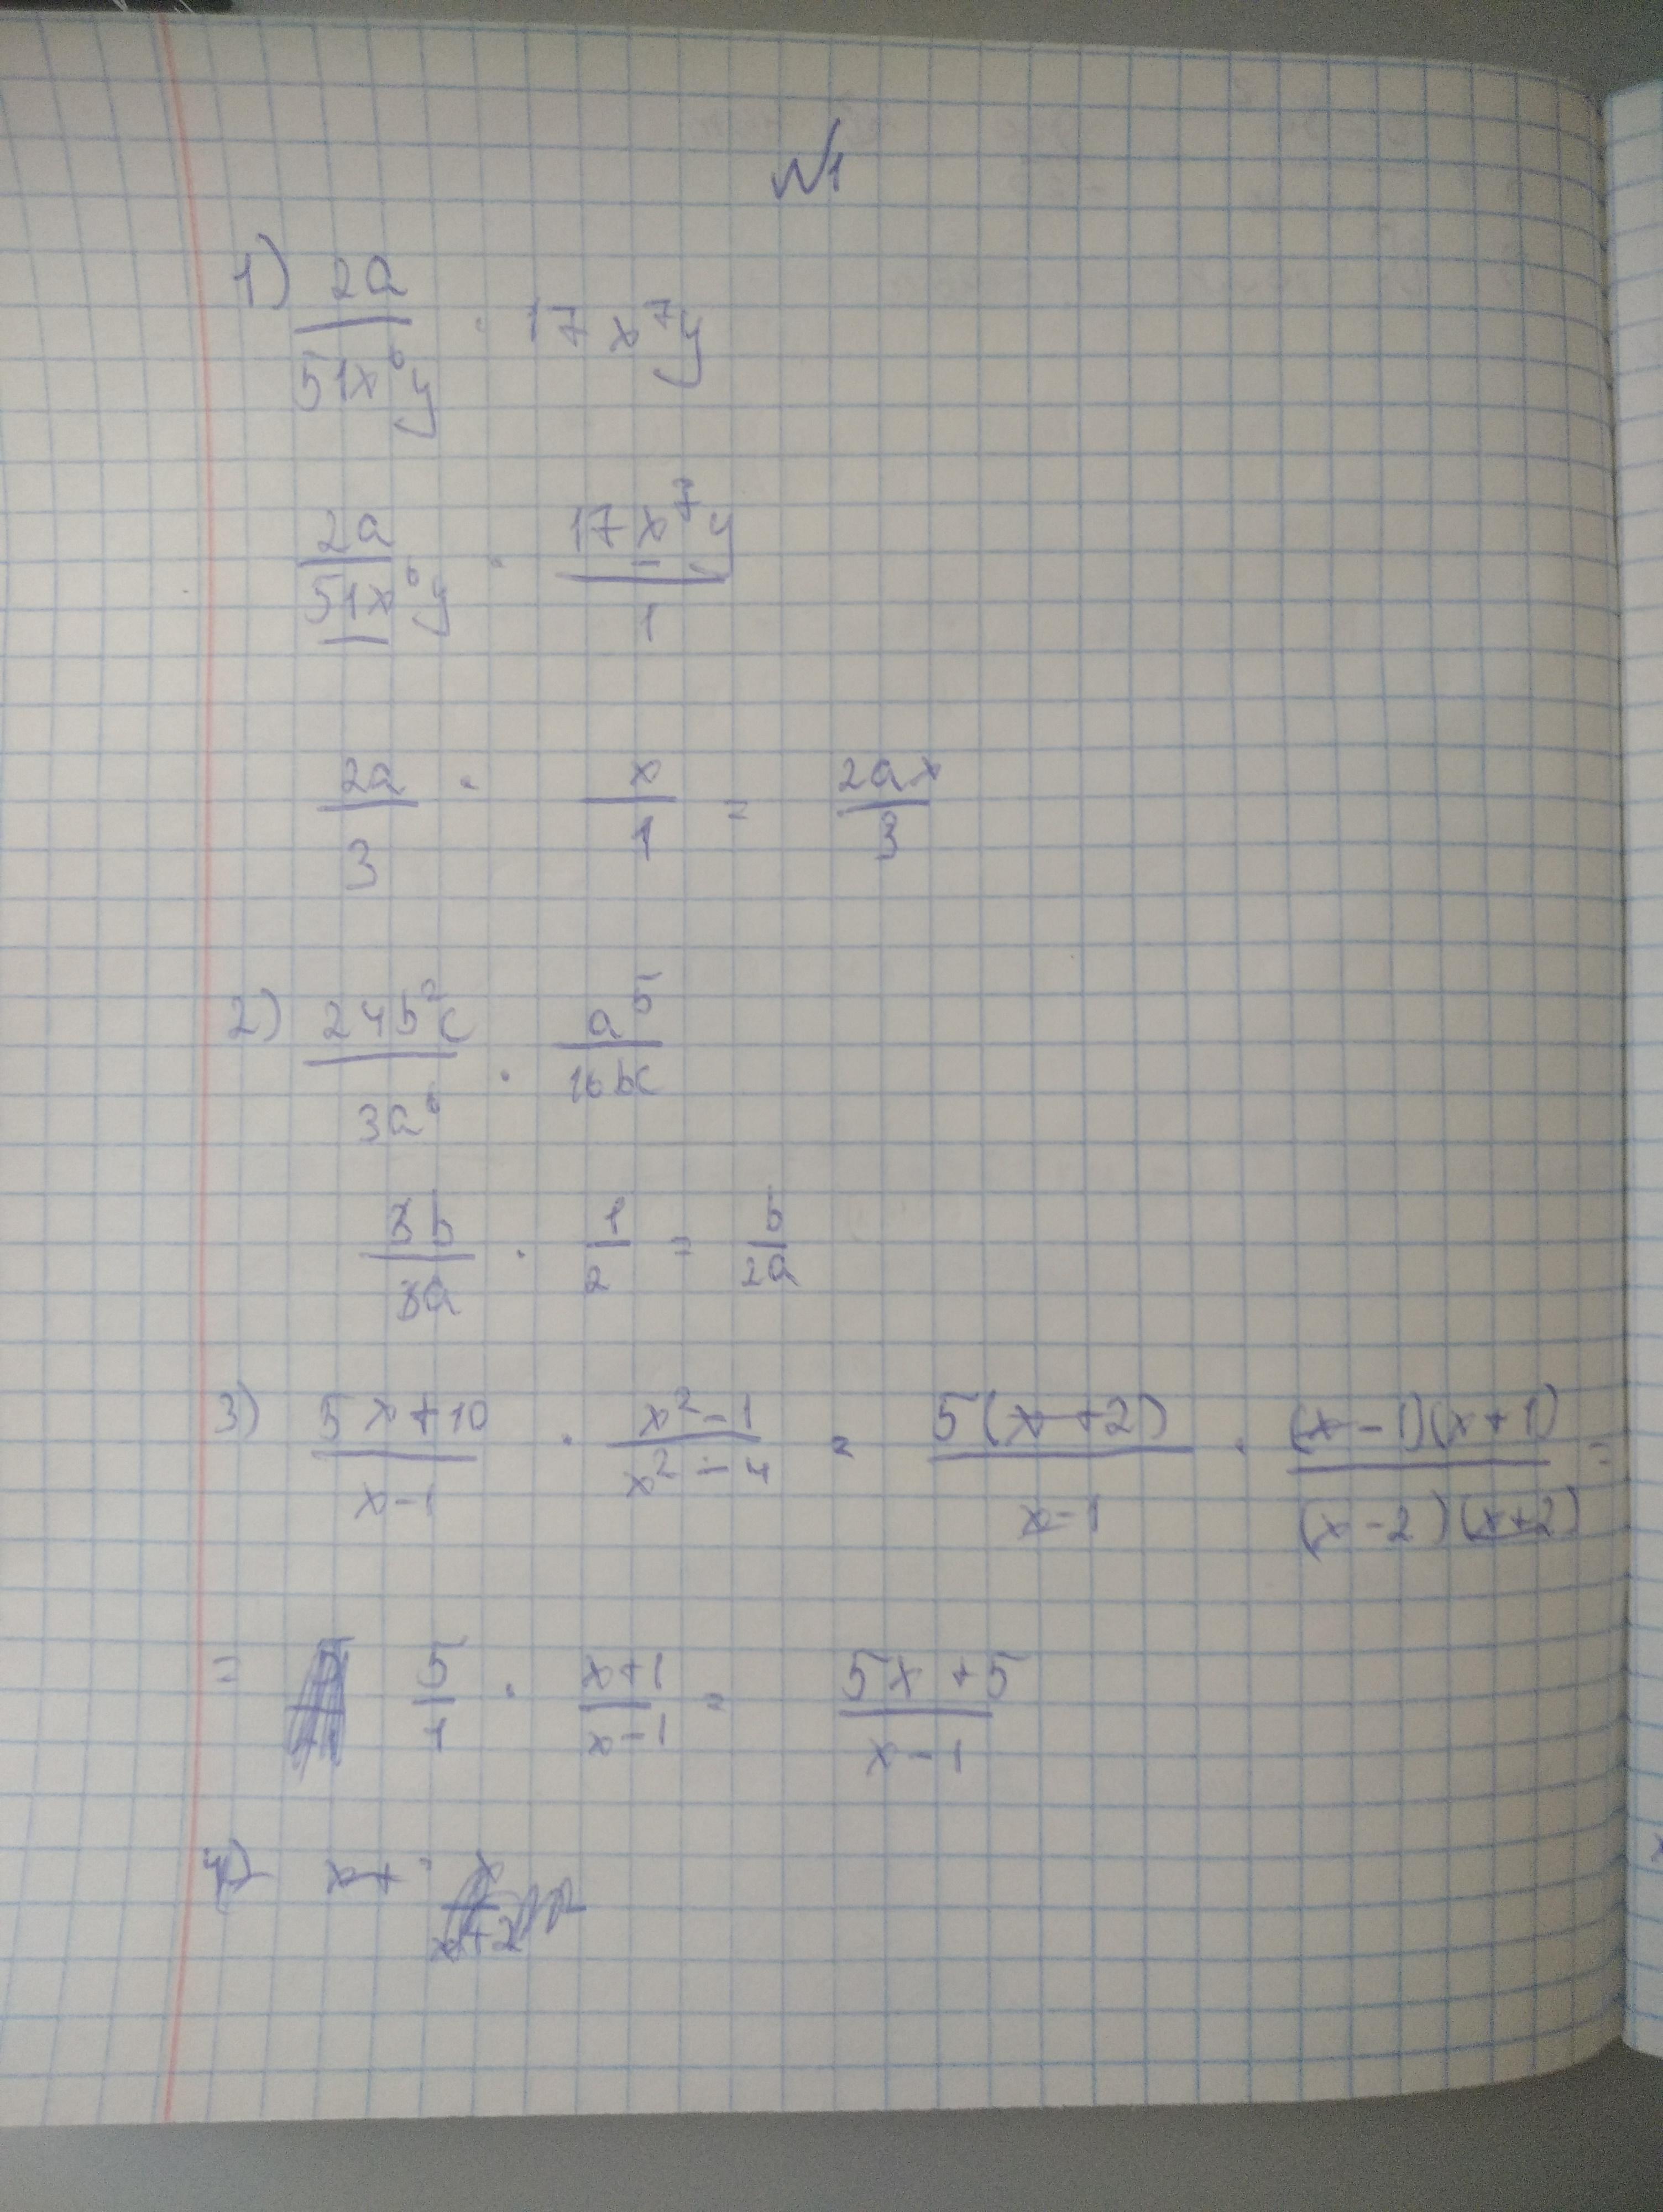 №1
1) 2a/(51x⁶y) · 17x⁷y
2a/(51x⁶y) · 17x⁷y/1
2a/3 · x/1 = 2ax/3
2) 24b²c/(3a⁶) · a⁵/(16bc)
3b/(3a) · 1/2 = b/(2a)
3) (5x+10)/(x-1) · (x²-1)/(x²-4) = 5(x+2)/(x-1) · (x-1)(x+1)/((x-2)(x+2)) =
= 5/1 · (x+1)/(x-1) = (5x+5)/(x-1)
4) x+